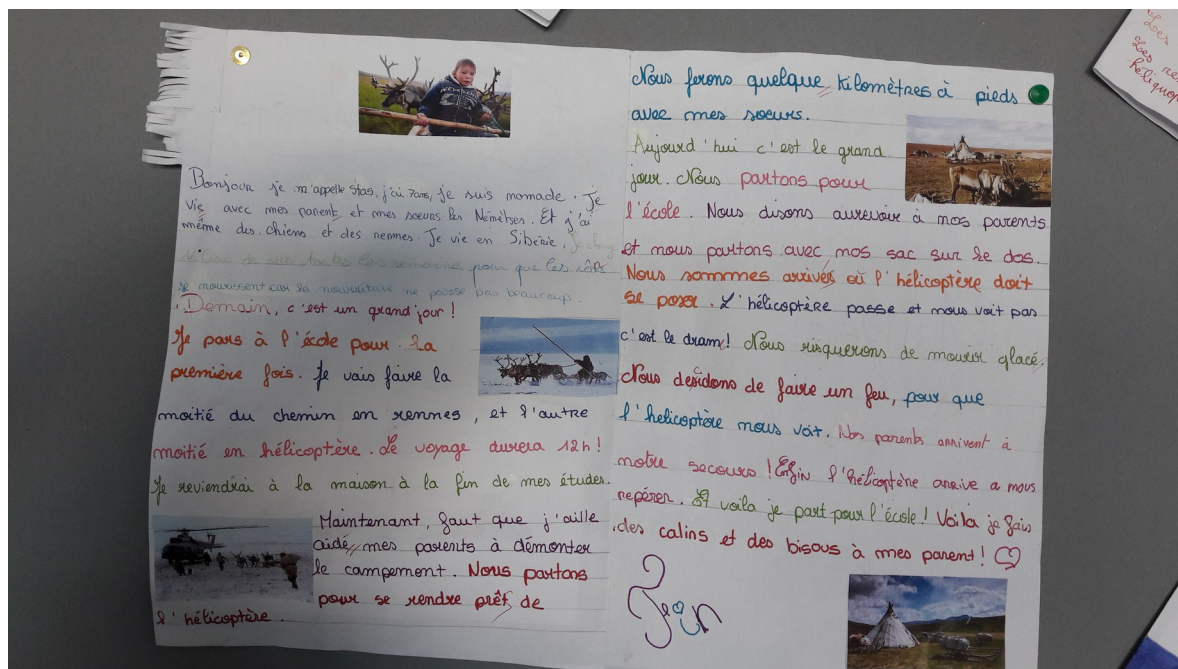 Bonjour je m'appelle Stas, j'ai 7ans, je suis nomade. Je
vie avec mes parent et mes soeurs les Némètses. Et j'ai
même des chiens et des rennes. Je vie en Sibérie. Je chang
de lieu de vie toutes les semaines pour que les
se nourissent car la nouvriture ne pousse pas beaucoup.
Demain, c'est un grand jour !
Je pars à l'école pour la
première fois. Je vais faire la
moitié du chemin en rennes, et l'autre
moitié en hélicoptère. Le voyage durera 12h !
Je reviendrai à la maison à la fin de mes études.
Maintenant, faut que j'aille
aidé mes parents à démonter
le campement. Nous partons
pour se rendre prêt de
l'hélicoptère.
Nous ferons quelque kilomètres à pieds
avec mes soeurs.
Aujourd'hui c'est le grand
jour. Nous partons pour
l'école. Nous disons aurevoir à nos parents
et nous partons avec nos sac sur le dos.
Nous sommes arrivés où l'hélicoptère doit
se poser. L'hélicoptère passe et nous voit pas
c'est le dram! Nous risquerons de mourir glacé
Nous decidons de faire un feu, pour que
l'helicoptère nous voit. Nos parents arrivent à
notre secours ! Enfin l'hélicoptère arrive a nous
repérer. Et voila je part pour l'école ! Voila je fais
des calins et des bisous à mes parent !
Fin
Les
Les re
héliquop